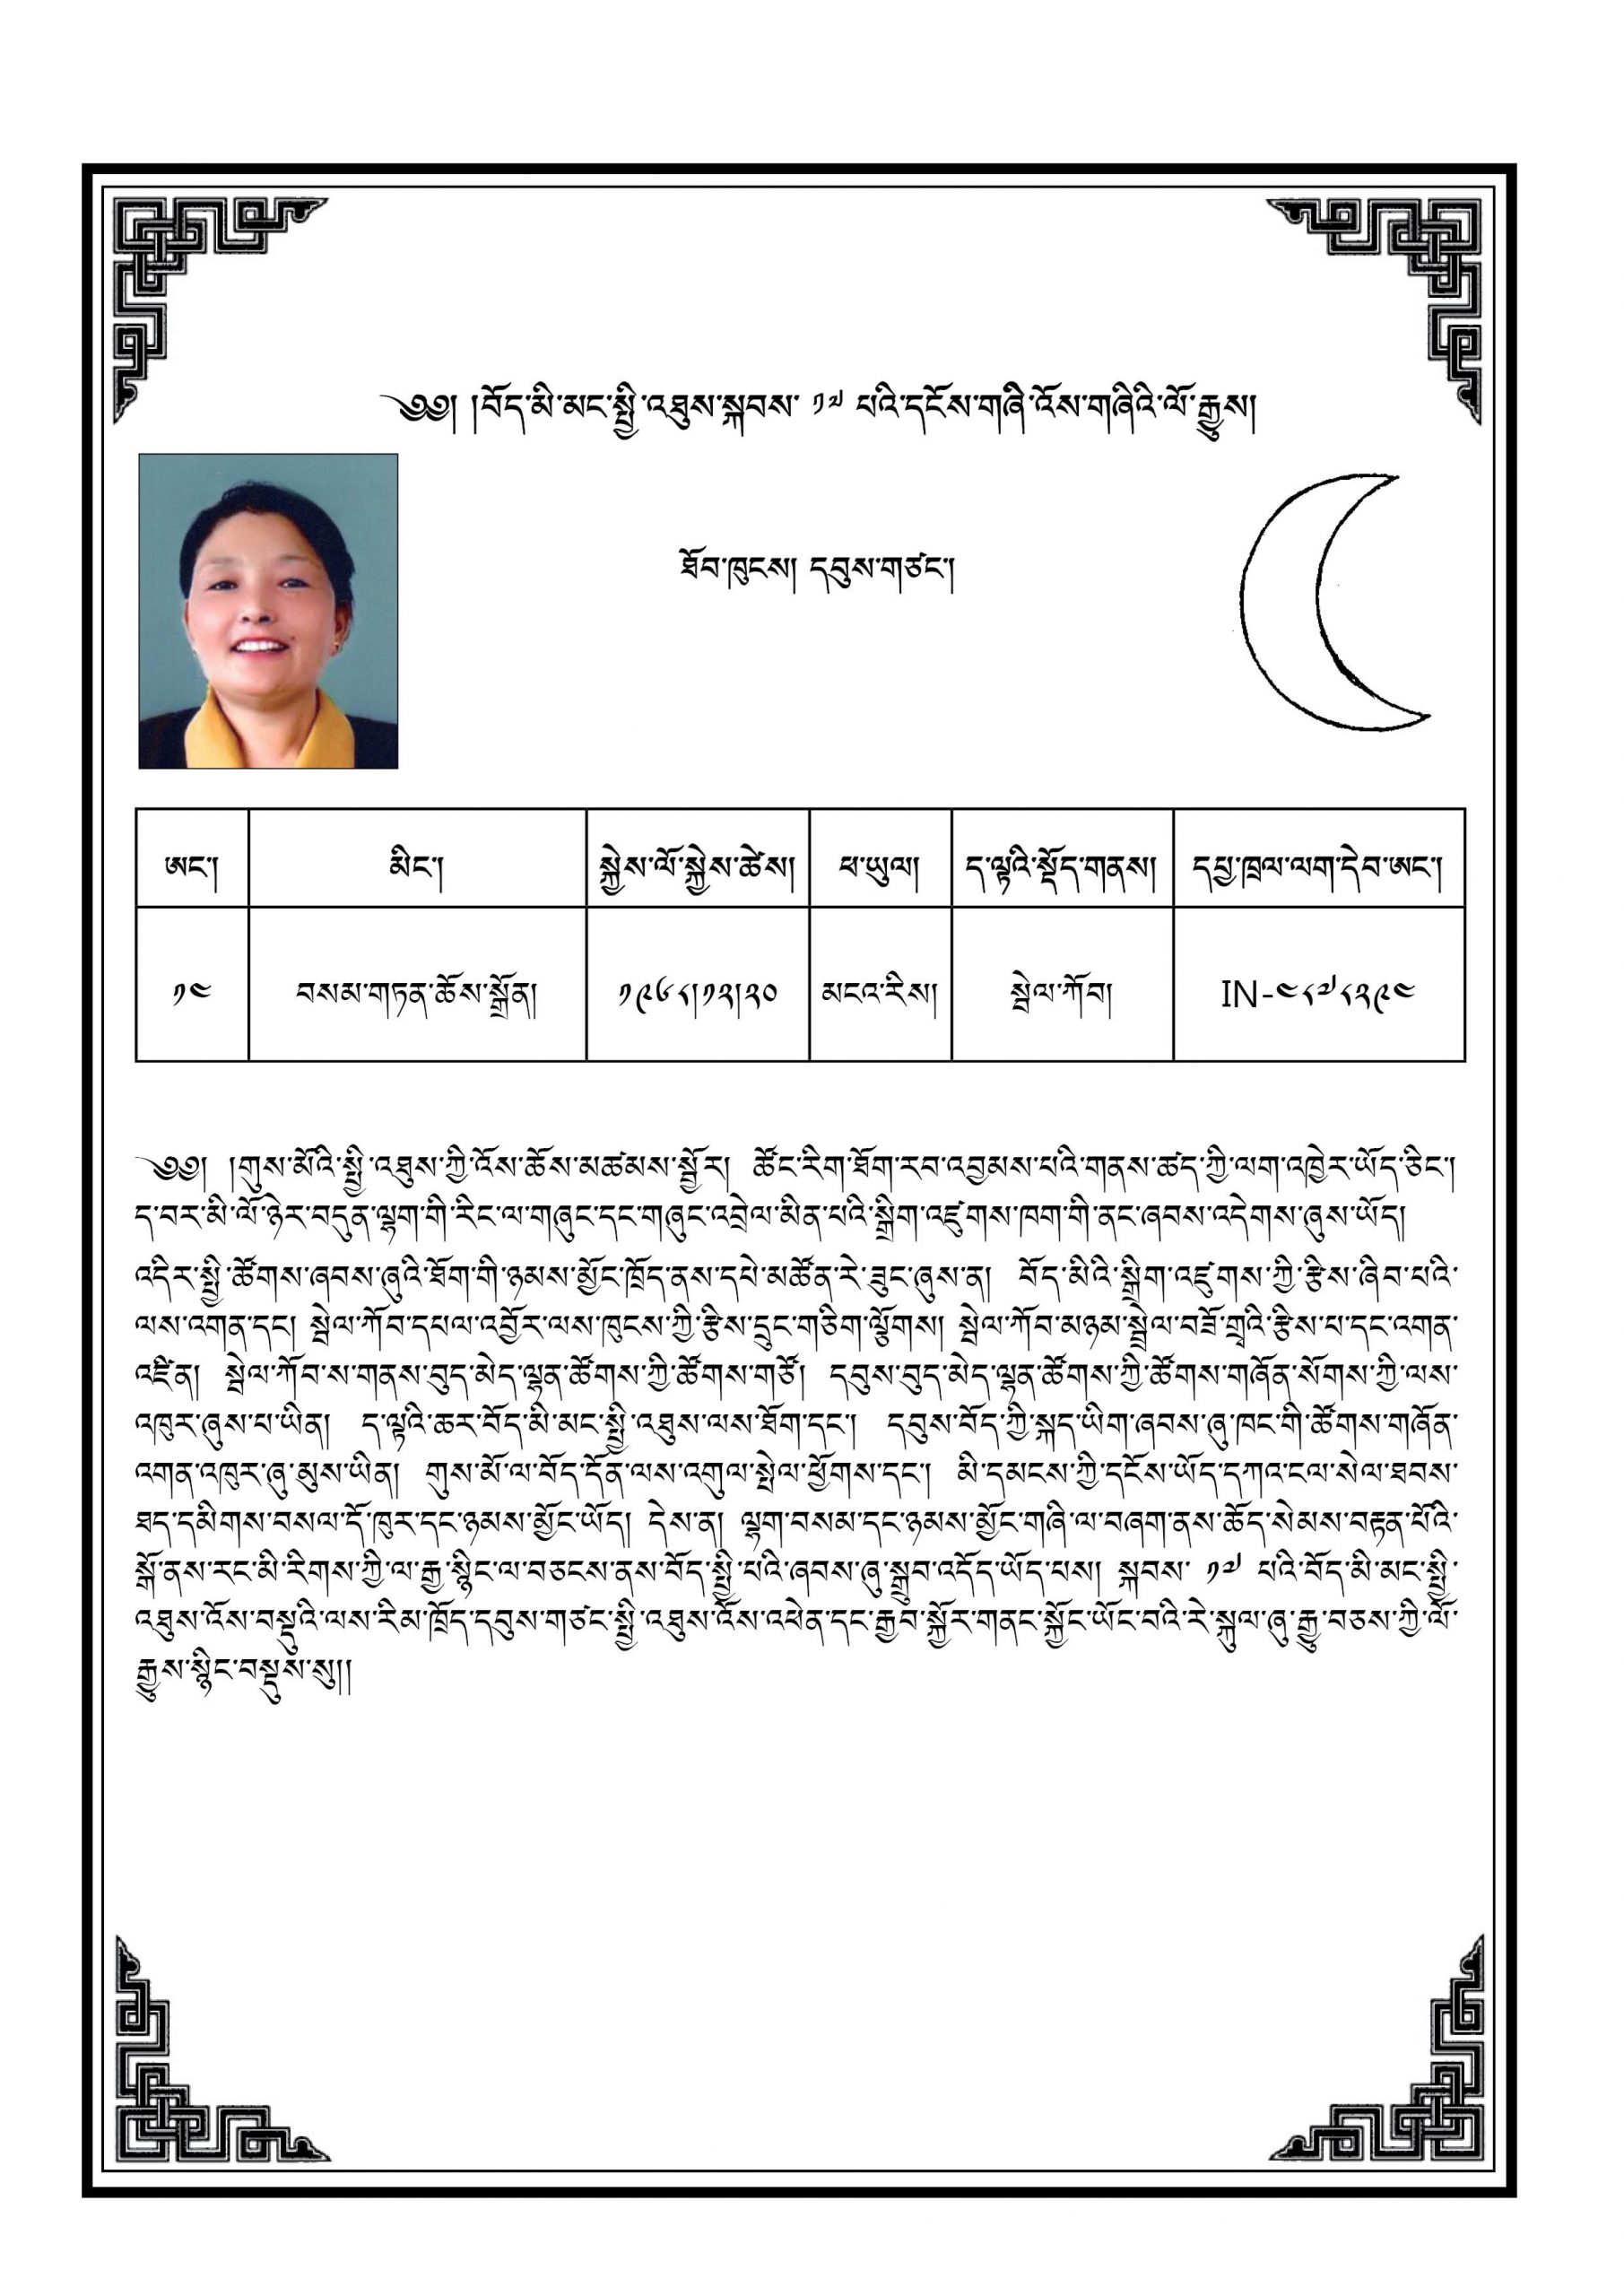 ༄༅། །བོད་མི་མང་སྤྱི་འཐུས་སྐབས་ ༡༧ པའི་དངོས་གཞི་འོས་གཞིའི་ལོ་རྒྱུས།
ཐོབ་ཁུངས། དབུས་གཙང་།
ཨང་། མིང་། སྐྱེས་ལོ་སྐྱེས་ཚེས། ཕ་ཡུལ། ད་ལྟའི་སྡོད་གནས། དཔྱ་ཁྲལ་ལག་དེབ་ཨང་།
༡༤ བསམ་གཏན་ཆོས་སྒྲོན། ༡༩༦༨།༡༢།༢༠ མངའ་རིས། སྦེལ་ཀོབ། IN-༤༨༧༨༢༩༤
༄༅། །གུས་མོའི་སྤྱི་འཐུས་ཀྱི་འོས་ཆོས་མཚམས་སྦྱོར། ཚོང་རིག་ཐོག་རབ་འབྱམས་པའི་གནས་ཚད་ཀྱི་ལག་འཁྱེར་ཡོད་ཅིང་།
ད་བར་མི་ལོ་ཉེར་བདུན་ལྷག་གི་རིང་ལ་གཞུང་དང་གཞུང་འབྲེལ་མིན་པའི་སྒྲིག་འཛུགས་ཁག་གི་ནང་ཞབས་འདེགས་ཞུས་ཡོད།
འདིར་སྤྱི་ཚོགས་ཞབས་ཞུའི་ཐོག་གི་ཉམས་མྱོང་ཁྲོད་ནས་དཔེ་མཚོན་རེ་ཟུང་ཞུས་ན། བོད་མིའི་སྒྲིག་འཛུགས་ཀྱི་རྩིས་ཞིབ་པའི་
ལས་འགན་དང། སྦེལ་ཀོབ་དཔལ་འབྱོར་ལས་ཁུངས་ཀྱི་རྩིས་དྲུང་གཅིག་ལྕོགས། སྦེལ་ཀོབ་མཉམ་སྦྲེལ་བཟོ་གྲྭའི་རྩིས་པ་དང་འགན་
འཛིན། སྦེལ་ཀོབ་ས་གནས་བུད་མེད་ལྷན་ཚོགས་ཀྱི་ཚོགས་གཙོ། དབུས་བུད་མེད་ལྷན་ཚོགས་ཀྱི་ཚོགས་གཞོན་སོགས་ཀྱི་ལས་
འཁུར་ཞུས་པ་ཡིན། ད་ལྟའི་ཆར་བོད་མི་མང་སྤྱི་འཐུས་ལས་ཐོག་དང་། དབུས་བོད་ཀྱི་སྐད་ཡིག་ཞབས་ཞུ་ཁང་གི་ཚོགས་གཞོན་
འགན་འཁུར་ཞུ་མུས་ཡིན། གུས་མོ་ལ་བོད་དོན་ལས་འགུལ་སྤེལ་ཕྱོགས་དང་། མི་དམངས་ཀྱི་དངོས་ཡོད་དཀའ་ངལ་སེལ་ཐབས་
ཐད་དམིགས་བསལ་དོ་ཁུར་དང་ཉམས་མྱོང་ཡོད། དེས་ན། ལྷག་བསམ་དང་ཉམས་མྱོང་གཞི་ལ་བཞག་ནས་ཆོད་སེམས་བརྟན་པོའི་
སྒོ་ནས་རང་མི་རིགས་ཀྱི་ལ་རྒྱ་སྙིང་ལ་བཅངས་ནས་བོད་སྤྱི་པའི་ཞབས་ཞུ་སྒྲུབ་འདོད་ཡོད་པས། སྐབས་ ༡༧ པའི་བོད་མི་མང་སྤྱི་
འཐུས་འོས་བསྡུའི་ལས་རིམ་ཁྲོད་དབུས་གཙང་སྤྱི་འཐུས་འོས་འཕེན་དང་རྒྱབ་སྐྱོར་གནང་སྐྱོང་ཡོང་བའི་རེ་སྐུལ་ཞུ་རྒྱུ་བཅས་ཀྱི་ལོ་
རྒྱུས་སྙིང་བསྡུས་སུ།།